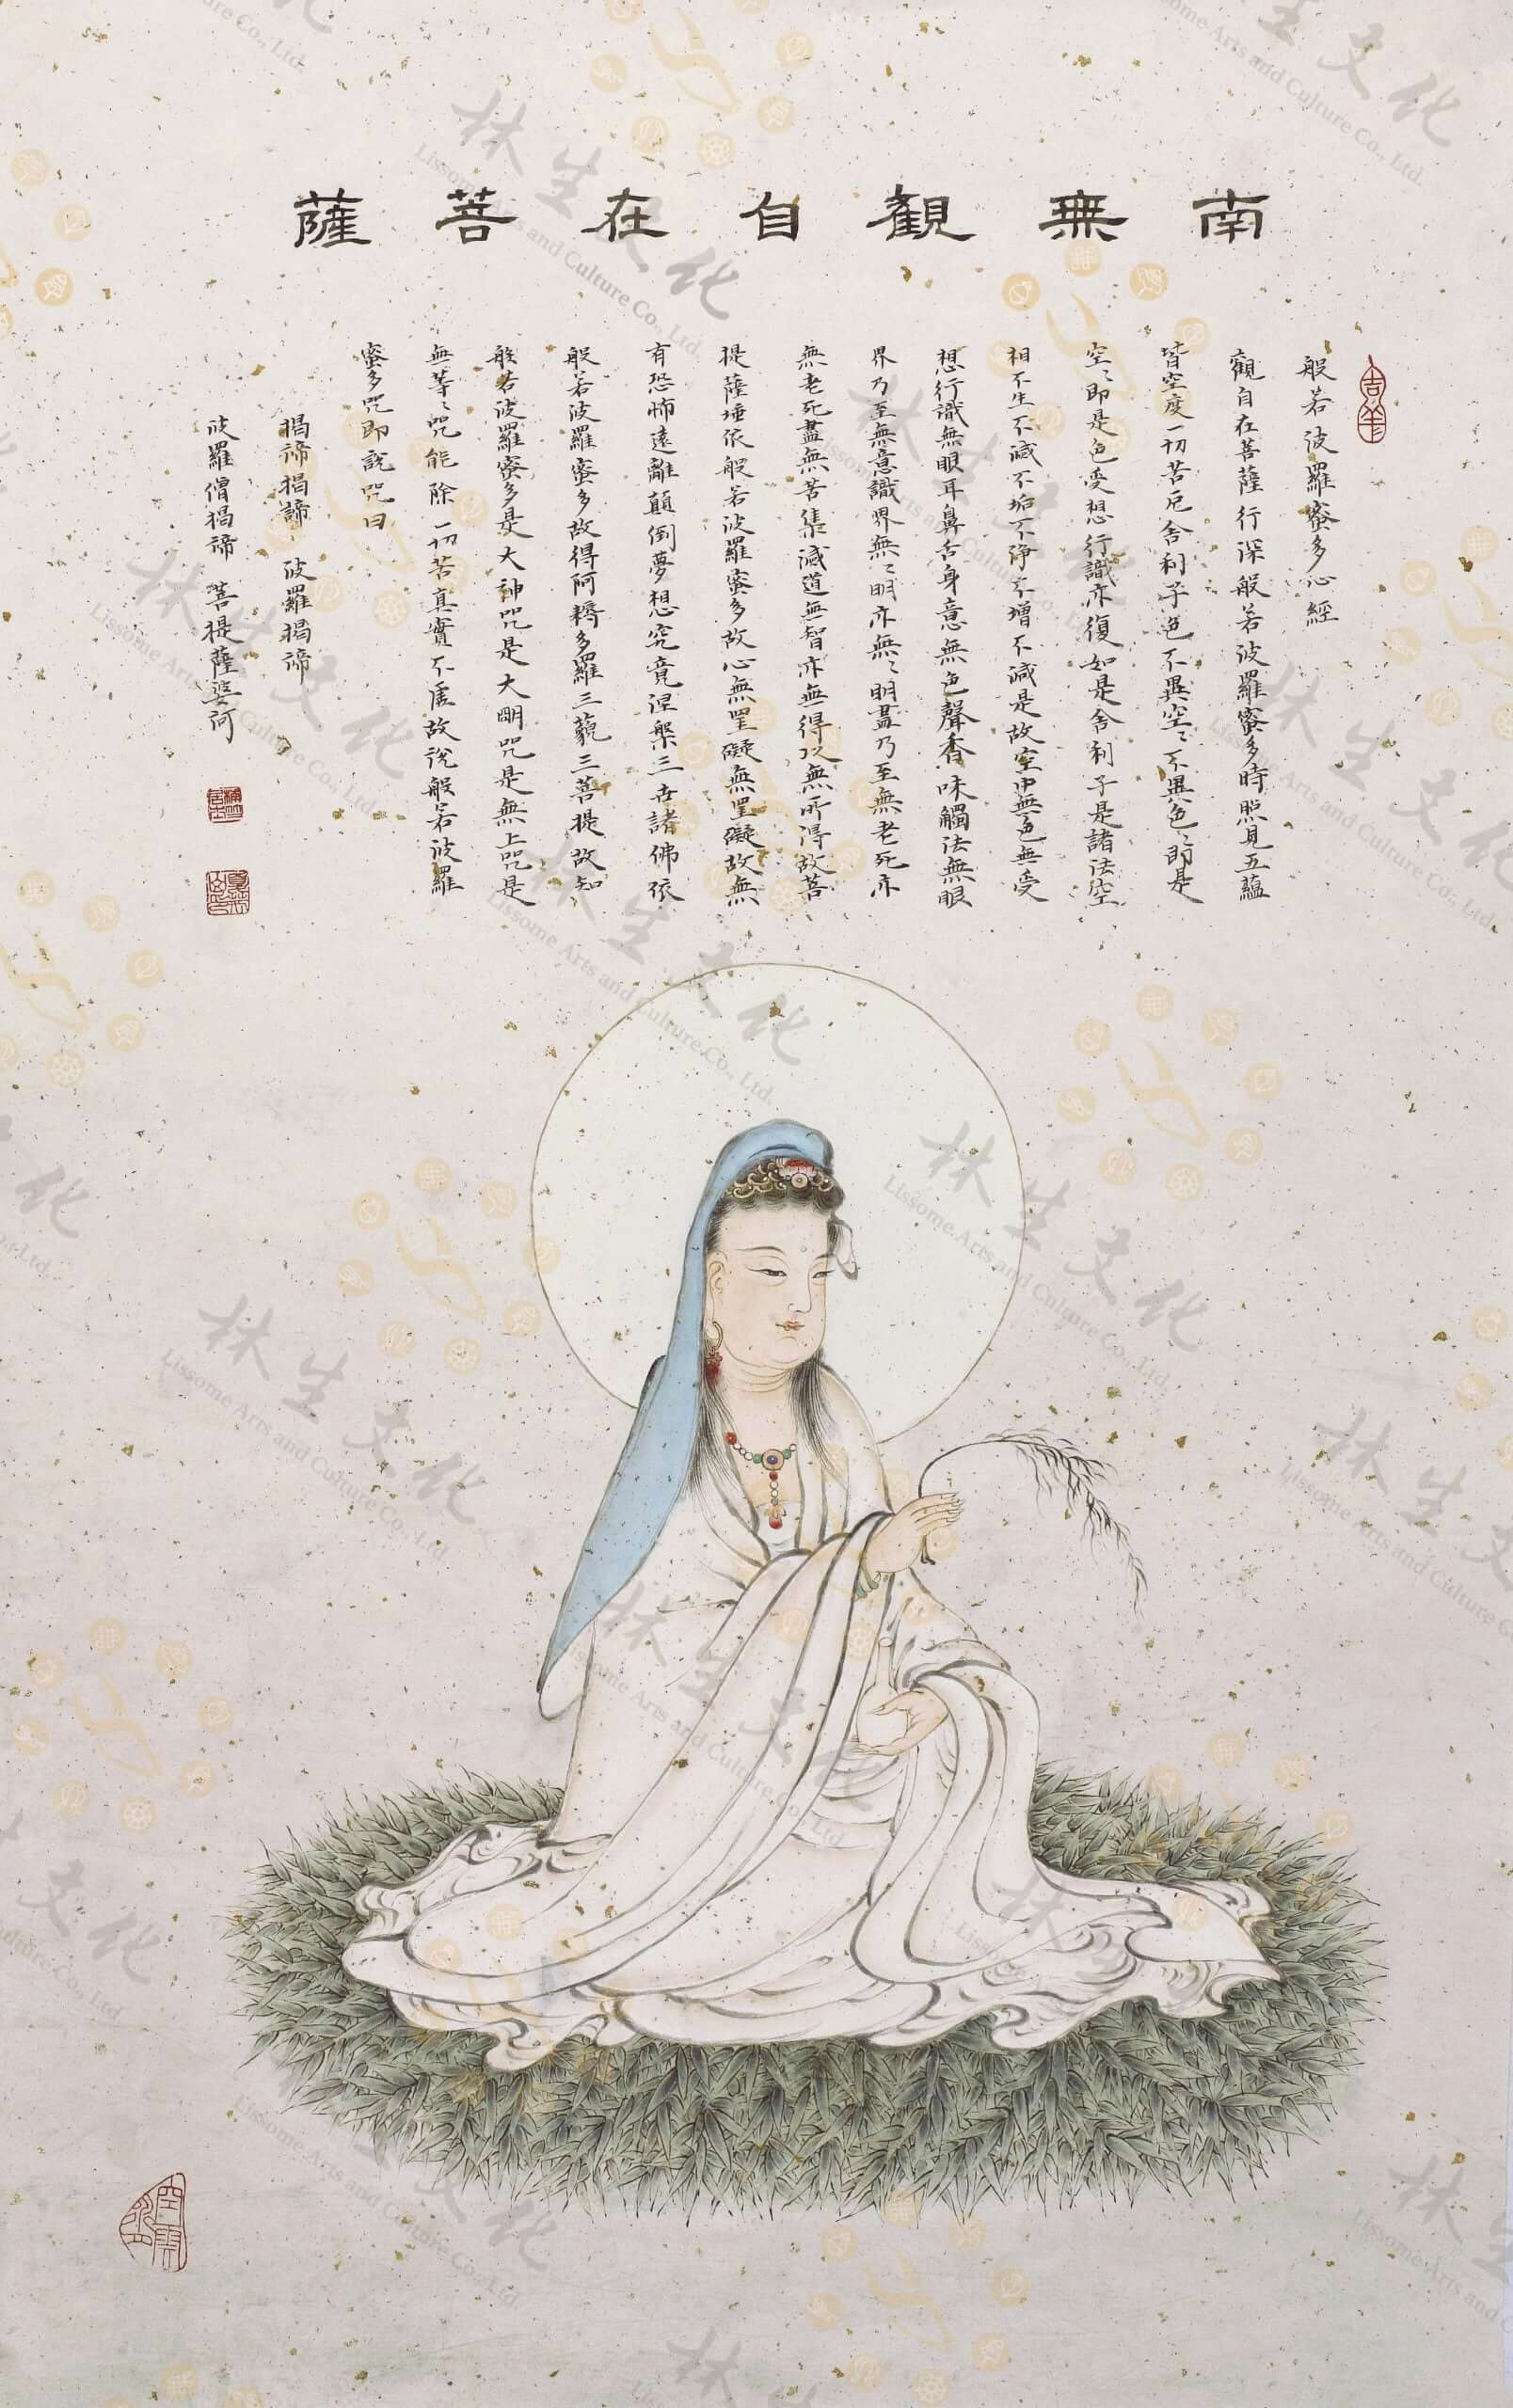 南無觀自在菩薩
吉羊
般若波羅蜜多心經
觀自在菩薩行深般若波羅蜜多時照見五蘊
皆空度一切苦厄舍利子色不異空〻不異色〻即是
空〻即是色受想行識亦復如是舍利子是諸法空
相不生不滅不垢不淨不增不減是故空中無色無受
想行識無眼耳鼻舌身意無色聲香味觸法無眼
界乃至無意識界無〻明亦無〻明盡乃至無老死亦
無老死盡無苦集滅道無智亦無得以無所得故菩
提薩埵依般若波羅蜜多故心無罣礙無罣礙故無
有恐怖遠離顛倒夢想究竟涅槃三世諸佛依
般若波羅蜜多故得阿耨多羅三藐三菩提故知
般若波羅蜜多是大神咒是大明咒是無上咒是
無等〻咒能除一切苦真實不虛故說般若波羅
蜜多咒即說咒曰
揭諦揭諦 波羅揭諦
波羅僧揭諦 菩提薩婆訶
林生文化
Lissome Arts and Culture Co., Ltd.